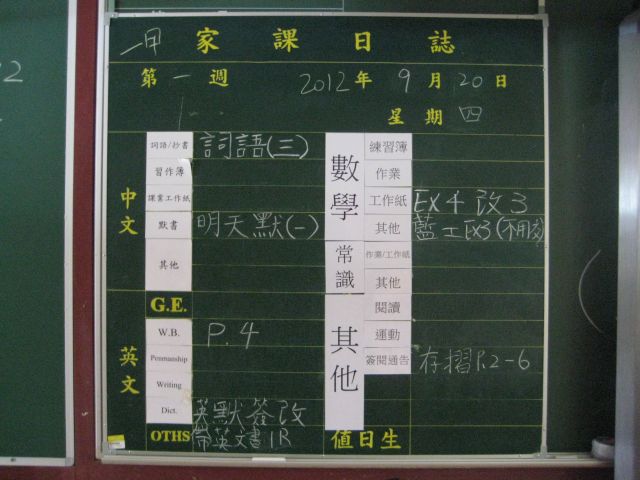 一甲 家課日誌
第一週 2012年9月20日
星期四
中文
詞語/抄書 詞語(三)
習作簿
課業工作紙
默書 明天默(一)
其他
數學
練習簿
作業
工作紙 EX4 改3
其他 藍工EX3(不用交)
常識
作業/工作紙
其他
英文
G.E.
W.B. P.4
Penmanship
Writing
Dict. 英默簽改
OTHS 帶英文書1R
其他
閱讀
運動
簽閱通告 存摺P.2-6
值日生